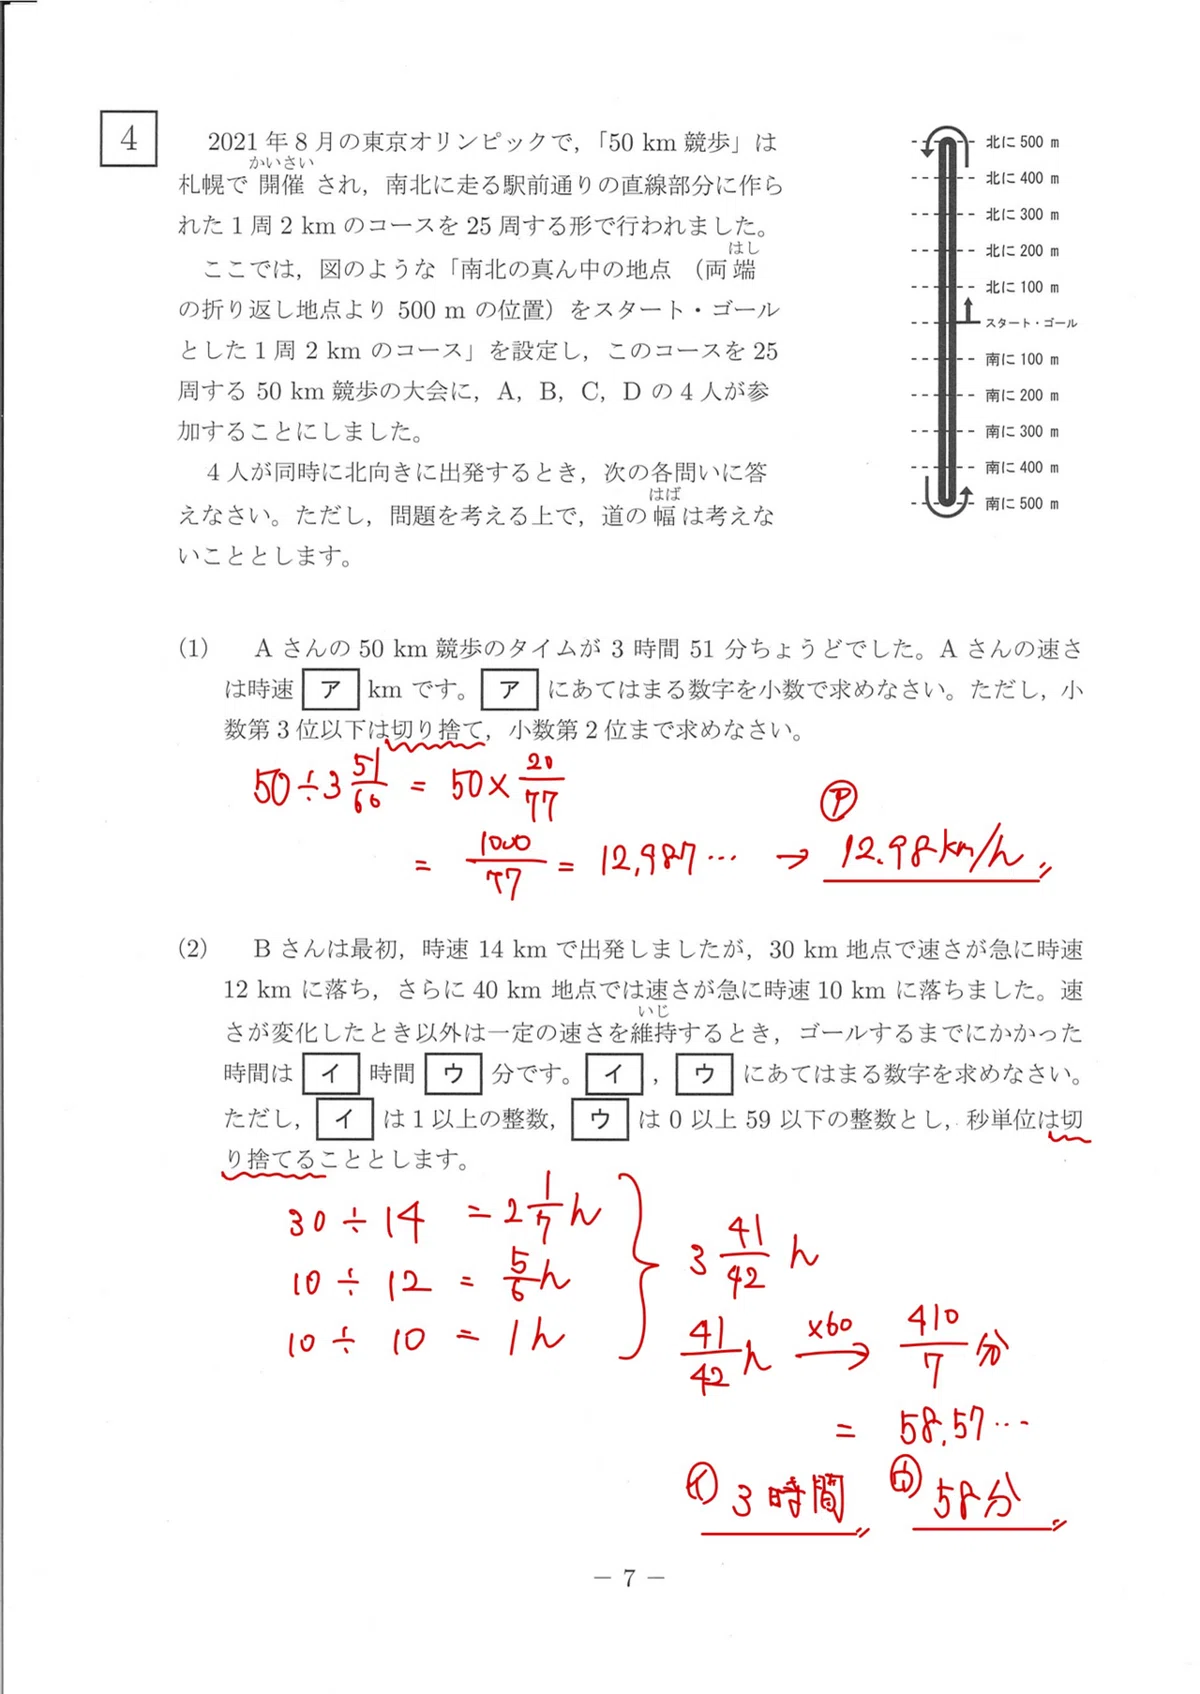 4
2021 年 8 月の東京オリンピックで,「50 km 競歩」は
かいさい
札幌で 開催 され, 南北に走る駅前通りの直線部分に作ら
れた 1 周 2 km のコースを 25 周する形で行われました。
はし
ここでは, 図のような「南北の真ん中の地点 (両端
の折り返し地点より 500 m の位置) をスタート・ゴール
とした 1 周 2 km のコース」を設定し, このコースを 25
周する 50 km 競歩の大会に, A, B, C, D の 4 人が参
加することにしました。
4 人が同時に北向きに出発するとき, 次の各問いに答
はば
えなさい。ただし, 問題を考える上で, 道の 幅 は考えな
いこととします。
北に 500 m
北に 400 m
北に 300 m
北に 200 m
北に 100 m
スタート・ゴール
南に 100 m
南に 200 m
南に 300 m
南に 400 m
南に 500 m
(1) A さんの 50 km 競歩のタイムが 3 時間 51 分ちょうどでした。A さんの速さ
は時速 ア km です。 ア にあてはまる数字を小数で求めなさい。ただし, 小
数第 3 位以下は切り捨て, 小数第 2 位まで求めなさい。
50÷3 51/60 = 50× 20/77
= 1000/77 = 12.987… → ア 12.98km/h
(2) B さんは最初, 時速 14 km で出発しましたが, 30 km 地点で速さが急に時速
12 km に落ち, さらに 40 km 地点では速さが急に時速 10 km に落ちました。速
いじ
さが変化したとき以外は一定の速さを維持するとき, ゴールするまでにかかった
時間は イ 時間 ウ 分です。 イ , ウ にあてはまる数字を求めなさい。
ただし, イ は 1 以上の整数, ウ は 0 以上 59 以下の整数とし, 秒単位は切
り捨てることとします。
30 ÷ 14 = 2 1/7 h
10 ÷ 12 = 5/6 h
10 ÷ 10 = 1h
3 41/42 h
41/42 h ×60 → 410/7 分
= 58.57…
イ 3時間 ウ 58分
— 7 —